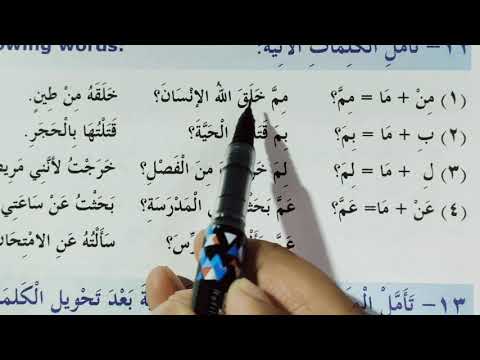 owing words:
١٢- تَأَمَّلْ الكَلِمَاتِ الآتِيَةَ:
(١) مِنْ + مَا = مِمَّ؟ مِمَّ خَلَقَ اللهُ الإِنْسَانَ؟ خَلَقَهُ مِنْ طِينٍ.
(٢) ب + مَا = بِمَ؟ بِمَ الْحَيَّةَ؟ قَتَلْتُهَا بِالْحَجَرِ.
(٣) لِ + مَا = لِمَ؟ لِمَ مِنَ الْفَصْلِ؟ خَرَجْتُ لأَنَّنِي مَرِيضٌ
(٤) عَنْ + مَا= عَمَّ؟ عَمَّ بَحَثْتَ الْمَدْرَسَةِ؟ بَحَثْتُ عَنْ سَاعَتِي
عَمَّ سَأَلْتُهُ عَنِ الامْتِحَانِ
١٣- تَأَمَّلْ بَعْدَ تَحْوِيلِ الْكَلِمَ